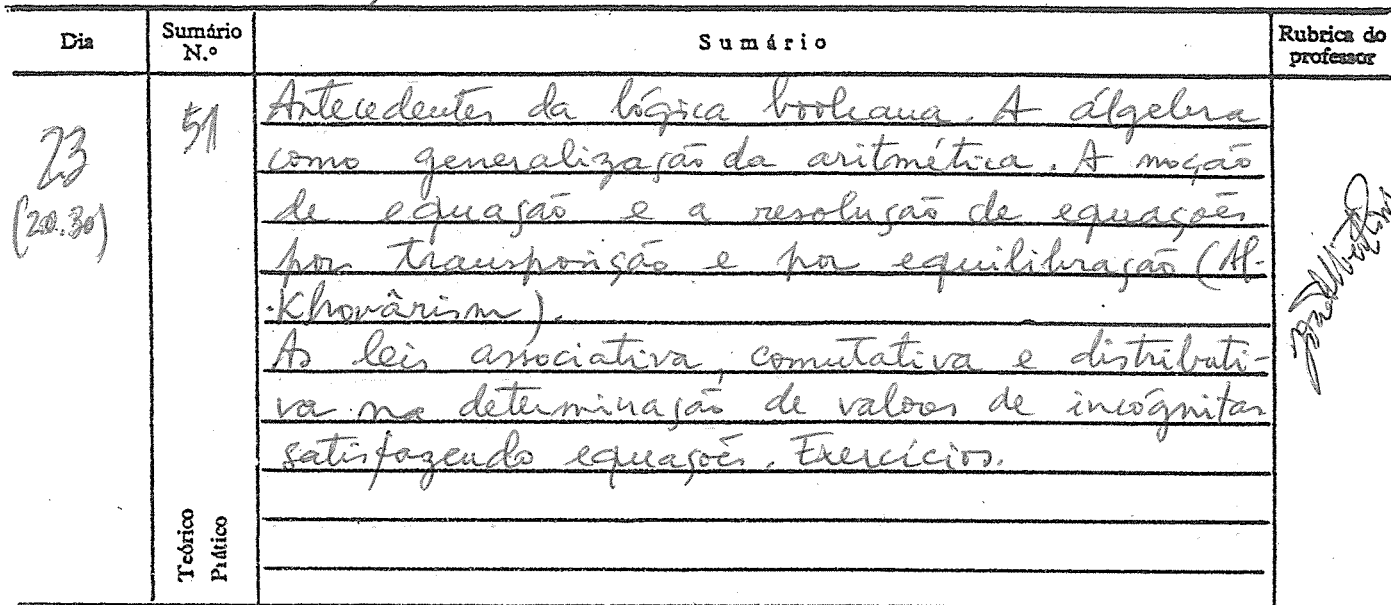 Dia
Sumário N.º
Sumário
Rubrica do professor
23
(20.30)
51
Antecedentes da lógica booleana. A álgebra
como generalização da aritmética. A noção
de equação e a resolução de equações
por transposição e por equilibração (Al-
-Khovârism).
As leis associativa, comutativa e distributi-
va na determinação de valores de incógnitas
satisfazendo equações. Exercícios.
Teórico
Prático